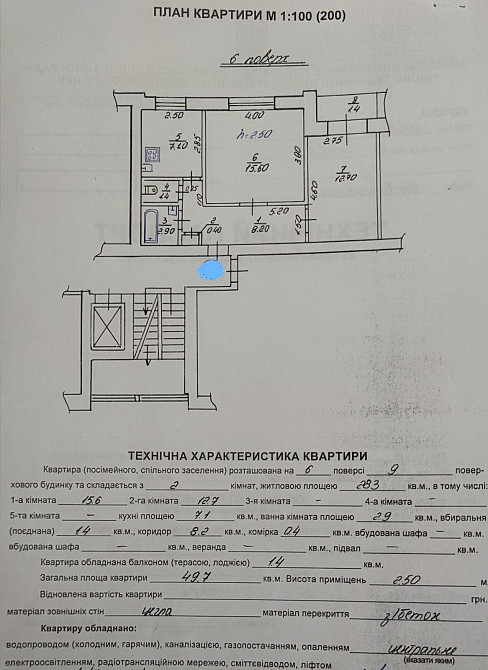 ПЛАН КВАРТИРИ М 1:100 (200)
6 поверх
2.50
4.00
8
1.4
5
7.10
2.85
h=2.50
6
15.60
3.90
2.75
7
12.70
4.60
4
1.4
3
2.90
2
0.40
5.20
1
8.20
ТЕХНІЧНА ХАРАКТЕРИСТИКА КВАРТИРИ
Квартира (посімейного, спільного заселення) розташована на 6 поверсі 9 повер-
хового будинку та складається з 2 кімнат, житловою площею 28.3 кв.м., в тому числі:
1-а кімната 15.6 2-га кімната 12.7 3-я кімната - 4-а кімната -
5-та кімната - кухні площею 7.1 кв.м., ванна кімната площею 2.9, вбиральня
(поєднана) 1.4 кв.м., коридор 8.2 кв.м., комірка 0.4 кв.м. вбудована шафа - кв.м.
вбудована шафа - кв.м., веранда - кв.м., підвал - кв.м.
Квартира обладнана балконом (терасою, лоджією) 1.4 кв.м.
Загальна площа квартири 49.7 кв.м. Висота приміщень 2.50 м
Відновлена вартість квартири грн.
матеріал зовнішніх стін цегла матеріал перекриття з/бетон
Квартиру обладнано:
водопроводом (холодним, гарячим), каналізацією, газопостачанням, опаленням центральне
(вказати яким)
електроосвітленням, радіотрансляційною мережею, сміттєвідводом, ліфтом